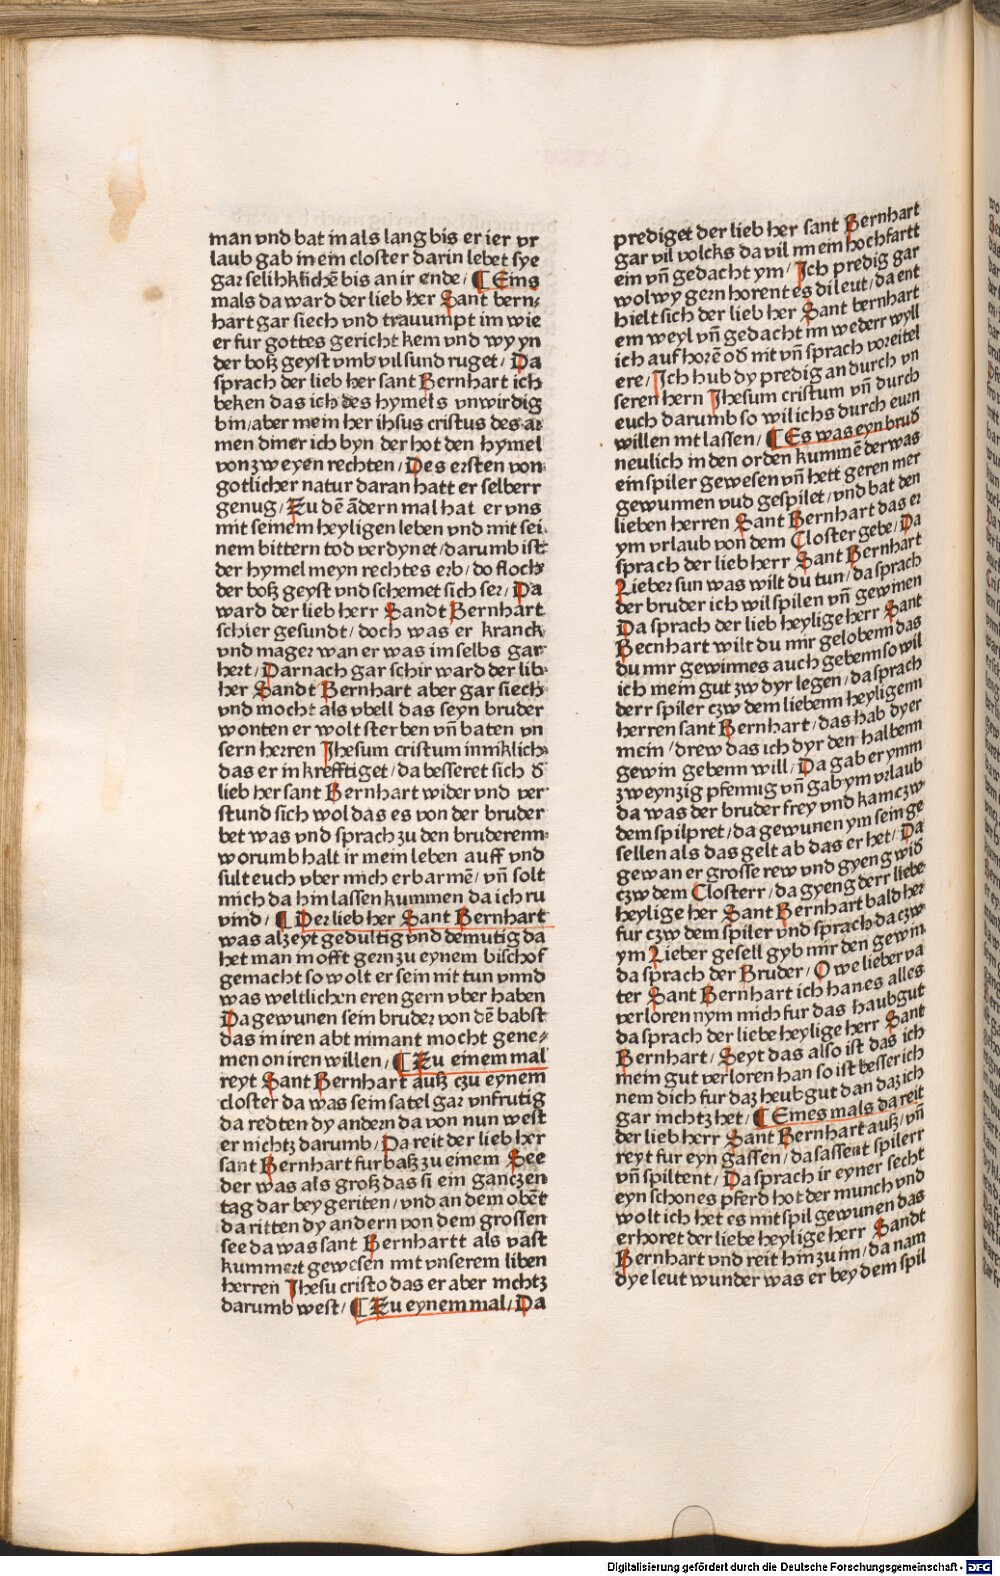 man vnd bat in als lang bis er ier vr
laub gab in ein closter darin lebet sye
gar selikklichē bis an ir ende / ¶ Eins
mals da ward der lieb her Sant bern⸗
hart gar siech vnd trauumpt im wie
er fur gottes gericht kem vnd wy yn
der boß geyst vmb vil sund ruget / Da
sprach der lieb her sant Bernhart ich
beken das ich des hymels vnwirdig
bin / aber mein her ihsus cristus des ar
men diner ich byn der hot den hymel
von zweyen rechten / Des ersten von
gotlicher natur daran hatt er selberr
genug / Zu dē ādern mal hat er vns
mit seinem heyligen leben vnd mit sei⸗
nem bittern tod verdynet / darumb ist
der hymel meyn rechtes erb / do floch
der boß geyst vnd schemet sich ser / Da
ward der lieb herr Sandt Bernhart
schier gesundt / doch was er kranck
vnd mager wan er was im selbs gar
hert / Darnach gar schir ward der lib
her Sandt Bernhart aber gar siech
vnd mocht als vbell das seyn bruder
wonten er wolt sterben vn̄ baten vn
sern herren Jhesum cristum inniklich
das er in krefftiget / da besseret sich d̄
lieb her sant Bernhart wider vnd ver
stund sich wol das es von der bruder
bet was vnd sprach zu den bruderenn
worumb halt ir mein leben auff vnd
sult euch vber mich erbarmē / vn̄ solt
mich da hin lassen kummen da ich ru
vind / ¶ Der lieb her Sant Bernhart
was alzeyt gedultig vnd demutig da
het man in offt gern zu eynem bischof
gemacht so wolt er sein nit tun vnnd
was weltlichen eren gern vber haben
Da gewunen sein bruder von dē babst
das in iren abt nimant mocht gene⸗
men on iren willen / ¶ Zu einem mal
reyt Sant Bernhart auß czu eynem
closter da was sein satel gar vnfrutig
da redten dy andern da von nun west
er nichtz darumb / Da reit der lieb her
sant Bernhart fur baß zu einem See
der was als groß das si ein ganczen
tag dar bey geriten / vnd an dem obēt
da ritten dy andern von dem grossen
see da was sant Bernhartt als vast
kummert gewesen mit vnserem liben
herren Jhesu cristo das er aber nichtz
darumb west / ¶ Zu eynem mal / Da
prediget der lieb her sant Bernhart
gar vil volcks da vil im ein hochfartt
ein vn̄ gedacht ym / Jch predig gar
wol wy gern horent es di leut / da ent
hielt sich der lieb her Sant bernhart
em weyl vn̄ gedacht im weder wyll
ich auf horē od̄ nit vn̄ sprach vpeitel
ere / Jch hub dy predig an durch vn
seren hern Jhesum cristum vn̄ durch
euch darumb so wil ichs durch eurn
willen nit lassen / ¶ Es was eyn brud̄
neulich in den orden kummē der was
ein spiler gewesen vn̄ hett geren mer
gewunnen vud gespilet / vnd bat den
lieben herren Sant Bernhart das er
ym vrlaub von dem Closter gebe / Da
sprach der lieb herr Sant Bernhart
Lieber sun was wilt du tun / da sprach
der bruder ich wil spilen vn̄ gewinen
Da sprach der lieb heylige herr Sant
Becnhart wilt du mir gelobenn das
du mir gewinnes auch gebenn so wil
ich mein gut zw dyr legen / da sprach
derr spiler czw dem liebenn heyligenn
herren sant Bernhart / das hab dyer
mein / drew das ich dyr den halbenn
gewin gebenn will / Da gab er ymm
zweynzig pfennig vn̄ gab ym vrlaub
da was der bruder frey vnd kam czw
dem spilpret / da gewunen ym sein ge
sellen als das gelt ab das er het / Da
gewan er grosse rew vnd gyeng wid̄
czw dem Closterr / da gyeng derr liebe
heylige her Sant Bernhart bald her
fur czw dem spiler vnd sprach da czw
ym Lieber gesell gyb mir den gewin
da sprach der Bruder / O we lieber va
ter Sant Bernhart ich han es alles
verloren nym mich fur das haubgut
da sprach der liebe heylige herr Sant
Bernhart / Seyt das also ist das ich
mein gut verloren han so ist besser ich
nem dich fur daz heubgut dan daz ich
gar nichtz het / ¶ Eines mals da reit
der lieb herr Sant Bernhart auß / vn̄
reyt fur eyn gassen / da sassent spilerr
vn̄ spiltent / Da sprach ir eyner secht
eyn schones pferd hot der munch vnd
wolt ich het es mit spil gewunen das
erhoret der liebe heylige herr Sandt
Bernhart vnd reit hin zu im / da nam
dye leut wunder was er bey dem spil
Digitalisierung gefördert durch die Deutsche Forschungsgemeinschaft - DFG